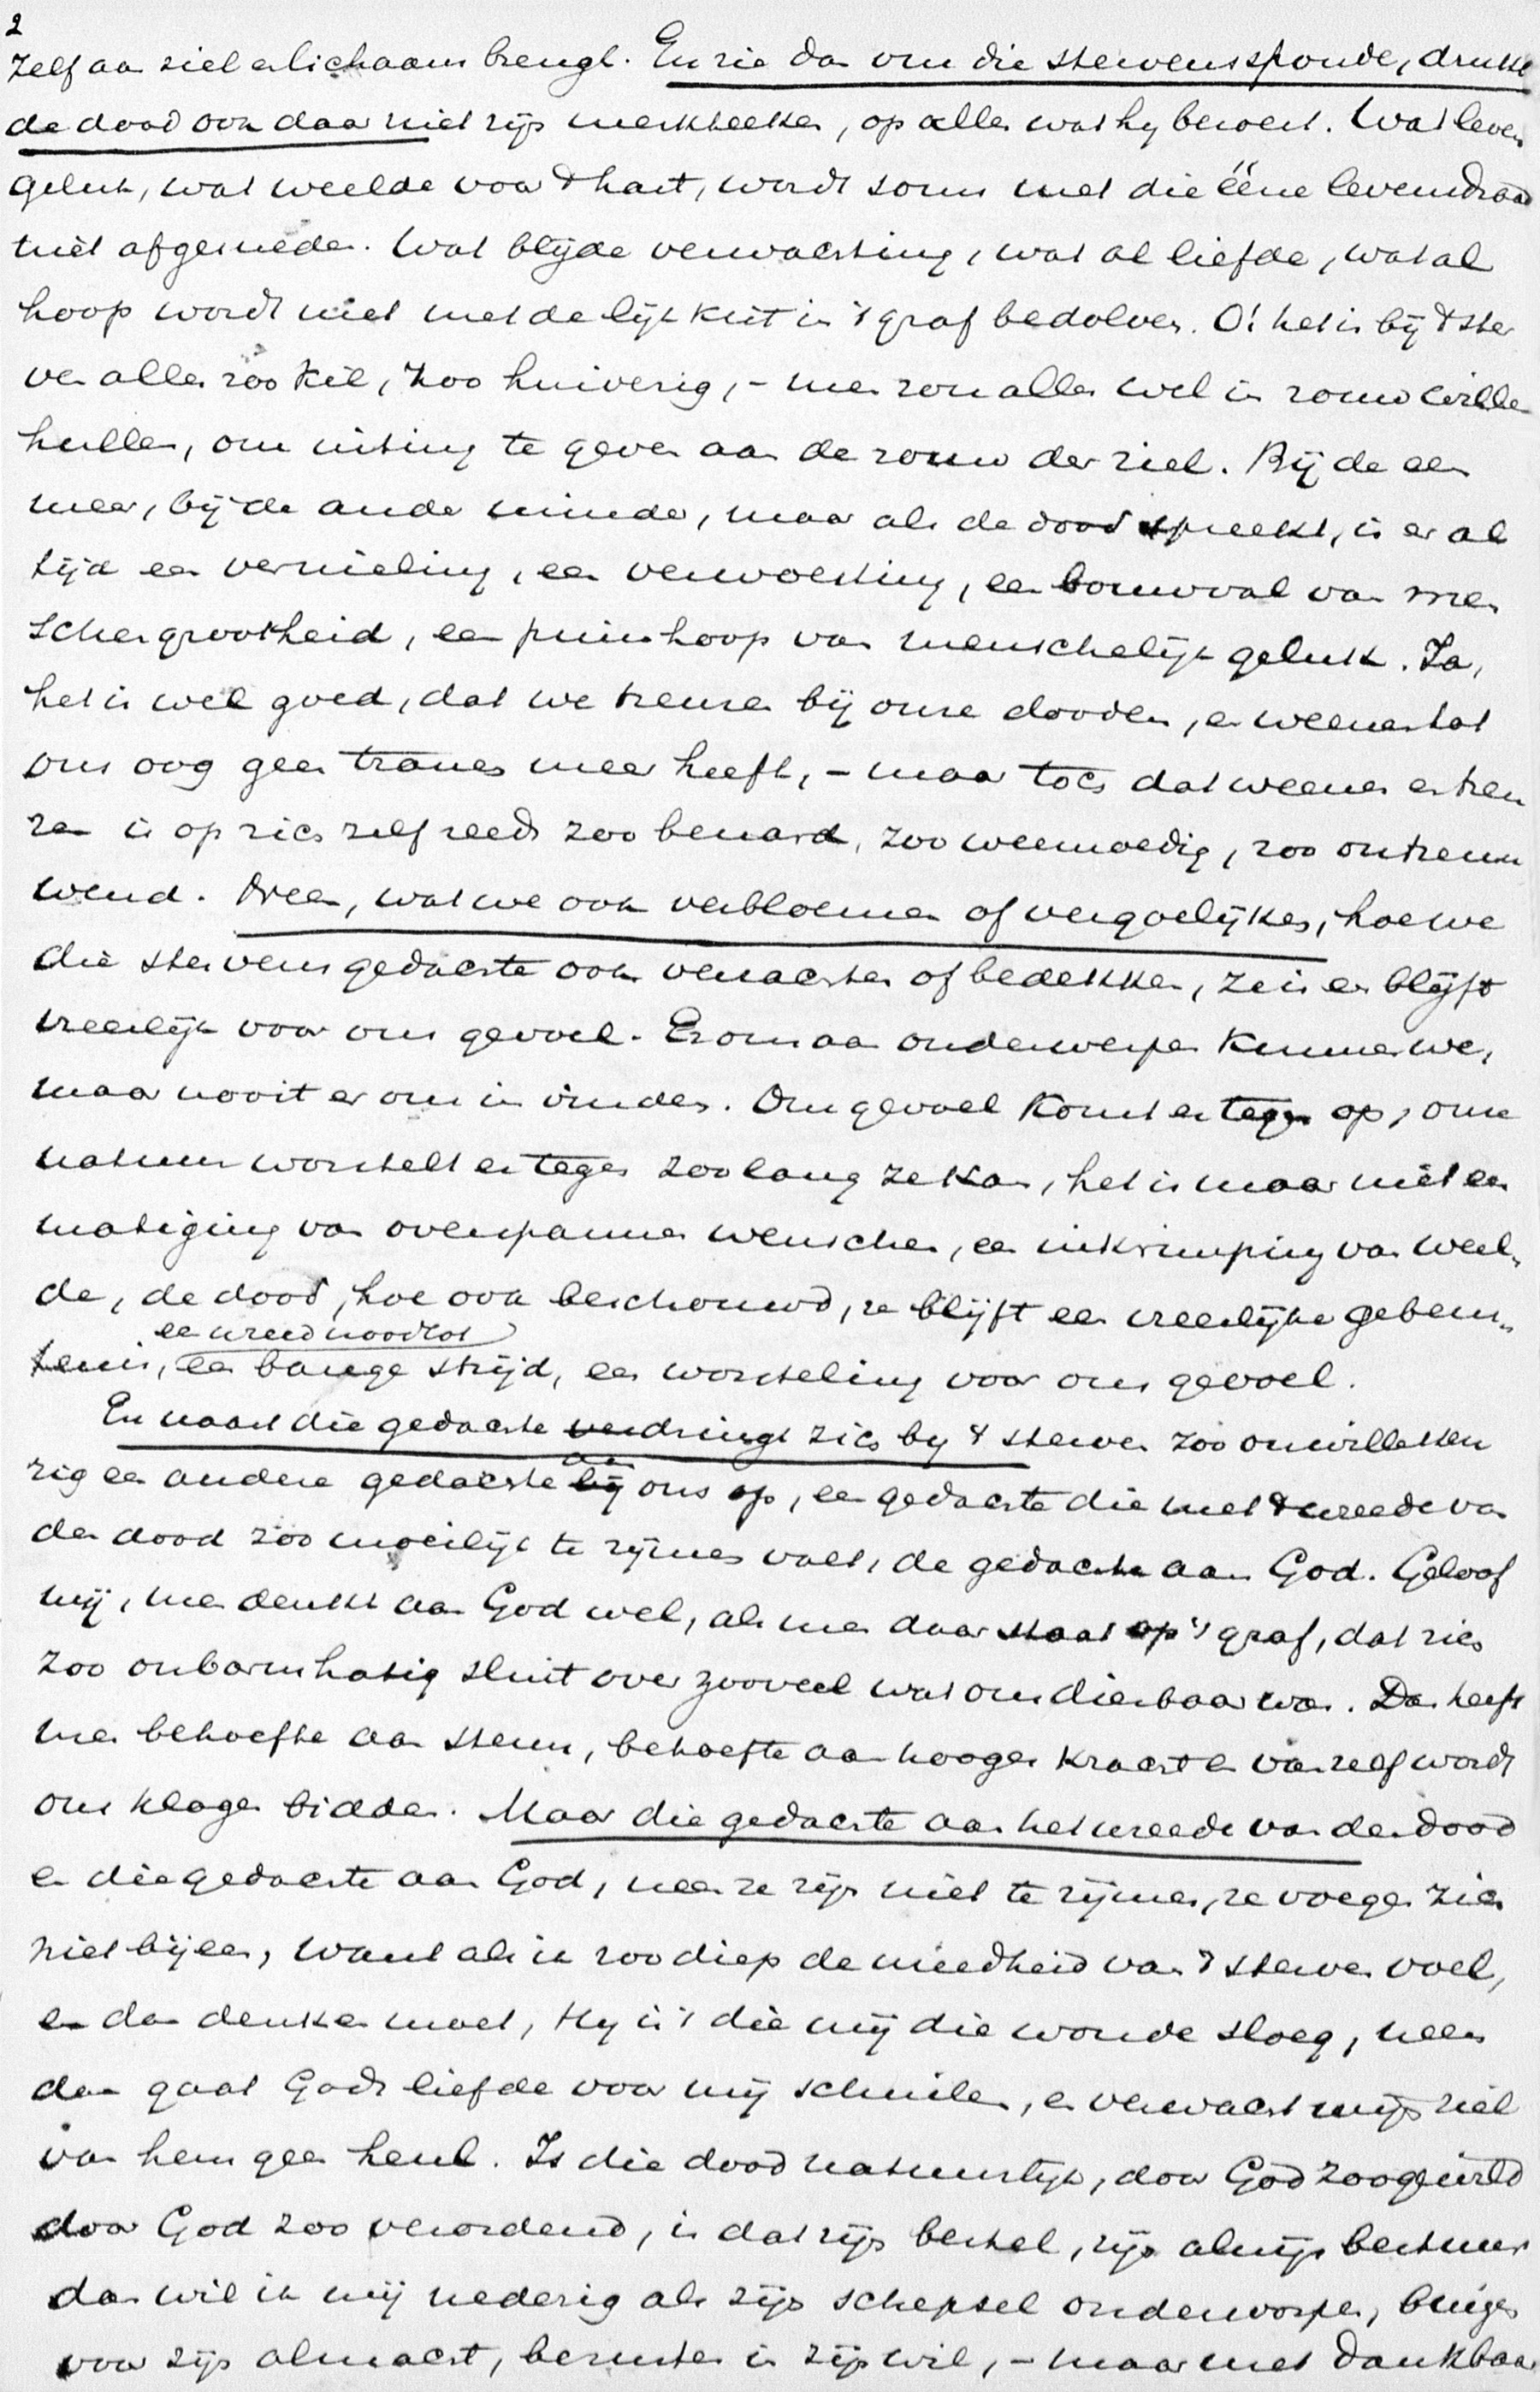 2
zelf aan ziel en lichaam brengt. En zie dan om die stervenssponde, drukt
de dood ook daar niet zijn merkteeken, op alles wat hy beroert. Wat leven
geluk, wat weelde voor 't hart, wordt soms met die ééne levensdraad
niet afgesneden. Wat blijde verwachting, wat al liefde, wat al
hoop wordt niet met de lijkkist in 't graf bedolven. O! het is bij 't ster
ven alles zoo kil, zoo huiverig, - men zou alles wel in rouw willen
hullen, om uiting te geven aan de rouw der ziel. Bij de een
meer, bij de ander minder, maar als de dood spreekt, is er al
tijd een vernieling, een verwoesting, een bouwval van men
schengrootheid, een puinhoop van menschelijk geluk. Ja,
het is wel goed, dat we treuren bij onze dooden, en weenen tot
ons oog geen tranen meer heeft, - maar toch dat weenen en treu
ren is op zich zelf reeds zoo benard, zoo weemoedig, zoo ontzenu
wend. Neen, wat we ook verbloemen of vergoelijken, hoe we
die stervensgedachte ook verzachten of bedekken, ze is en blijft
vreeselijk voor ons gevoel. Er ons aan onderwerpen kunnen we,
maar nooit er ons in vinden. Ons gevoel komt er tegen op, onze
natuur worstelt er tegen zoolang ze kan, het is maar niet een
matiging van overspannen wenschen, een inkrimping van weel
de, de dood, hoe ook beschouwd, ze blijft een vreeselijke gebeur
een wreed noodlot
tenis, een bange strijd, een worsteling voor ons gevoel.
En naast die gedachte verdringt zich by 't sterven zoo onwillekeu
rig een andere gedachte bij ons op, een gedachte die met 't wreede van
den dood zoo moeilijk te rijmen valt, de gedachte aan God. Geloof
mij, men denkt aan God wel, als men daar staat op 't graf, dat zich
zoo onbarmhartig sluit over zooveel wat ons dierbaar was. Dan heeft
men behoefte aan steun, behoefte aan hooger kracht en van zelf wordt
ons klagen bidden. Maar die gedachte aan het wreede van den dood
en die gedachte aan God, neen ze zijn niet te rijmen, ze voegen zich
niet bijeen, want als ik zoo diep de wreedheid van 't sterven voel,
en dan denken moet, Hy is 't die mij die wonde sloeg, neen
dan gaat Gods liefde voor mij schuilen, en verwacht mijn ziel
van hem geen heul. Is die dood natuurlijk, door God zoo gewild
door God zoo verordend, is dat zijn bestel, zijn alwijs bestuur
dan wil ik mij nederig als zijn schepsel onderworpen, buigen
voor zijn almacht, berusten in zijn wil, - maar met dankbaar